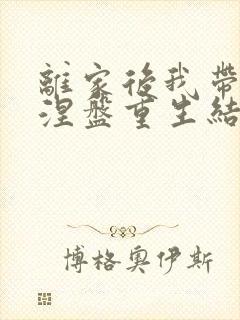 離家後我帶
涅盤重生結
博格奧伊斯